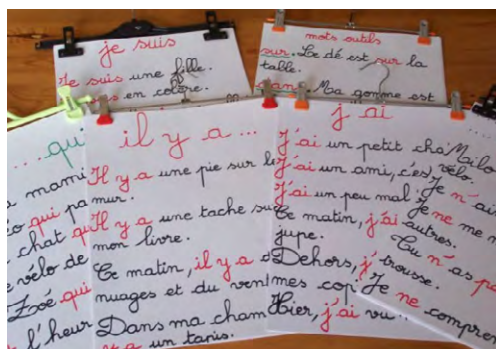 je suis
Je suis une fille.
en colère.
mots outils
sur. Le dé est sur la
table.
dans. Ma gomme est
...qui
a mami
qui pa
chat qu
vélo de
Zoé qui
l'heur
il y a ...
Il y a une pie sur le
mur.
Il y a une tache su
mon livre.
Ce matin, il y a d
nuages et du ven
Dans ma cham
y a un tapis.
j'ai
J'ai un petit cha
J'ai un ami, c'es
J'ai un peu mal.
Ce matin, j'ai
jupe.
Dehors, j'
mes cop
Hier, j'ai vu
Milo
vélo.
Je n'ai
Je ne me
autres.
Tu n'as pa
trousse.
Je ne compren